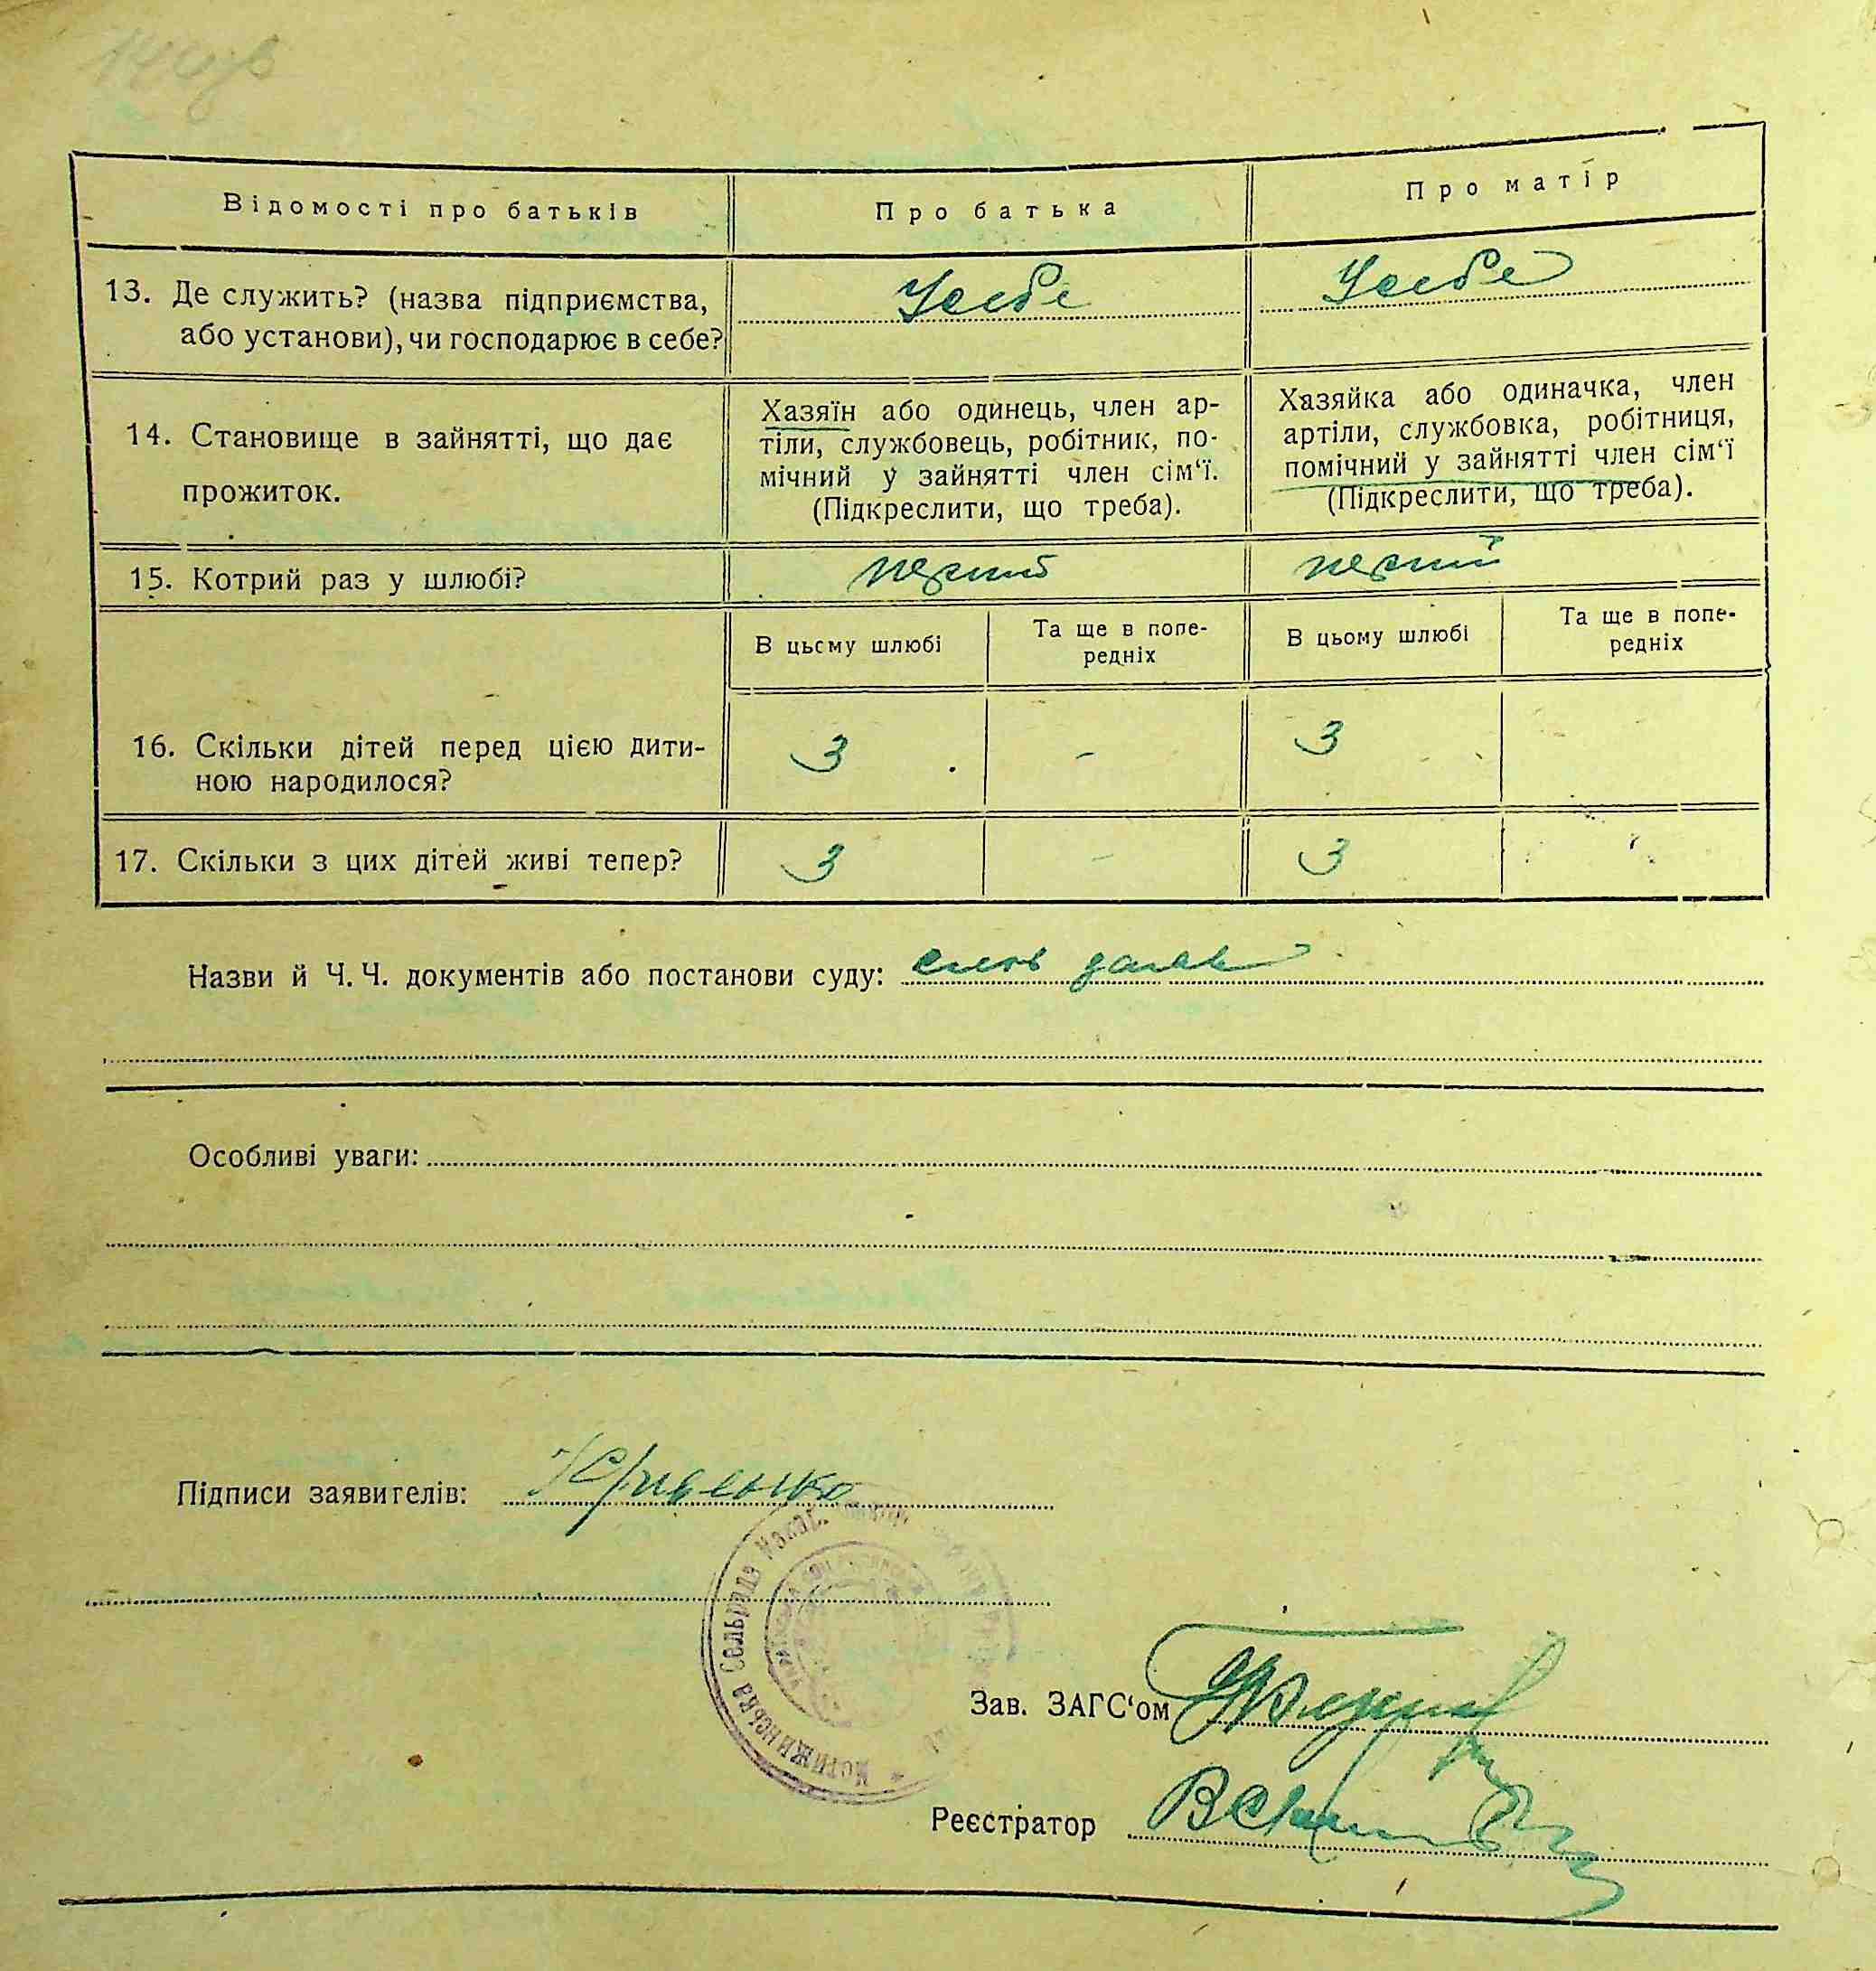 Відомості про батьків
Про батька
Про матір
13. Де служить? (назва підприємства,
або установи), чи господарює в себе?
Усебе
Усебе
14. Становище в зайнятті, що дає
прожиток.
Хазяїн або одинець, член ар-
тіли, службовець, робітник, по-
мічний у зайнятті член сім‘ї.
(Підкреслити, що треба).
Хазяйка або одиначка, член
артіли, службовка, робітниця,
помічний у зайнятті член сім‘ї
(Підкреслити, що треба).
15. Котрий раз у шлюбі?
перший
перший
В цьсму шлюбі
Та ще в попе-
редніх
В цьому шлюбі
Та ще в попе-
редніх
16. Скільки дітей перед цією дити-
ною народилося?
3
-
3
17. Скільки з цих дітей живі тепер?
3
-
3
Назви й Ч. Ч. документів або постанови суду:
Особливі уваги:
Підписи заявителів: Юрченко
Мотижинська Сельрада Макар.
Зав. ЗАГС‘ом
Реєстратор